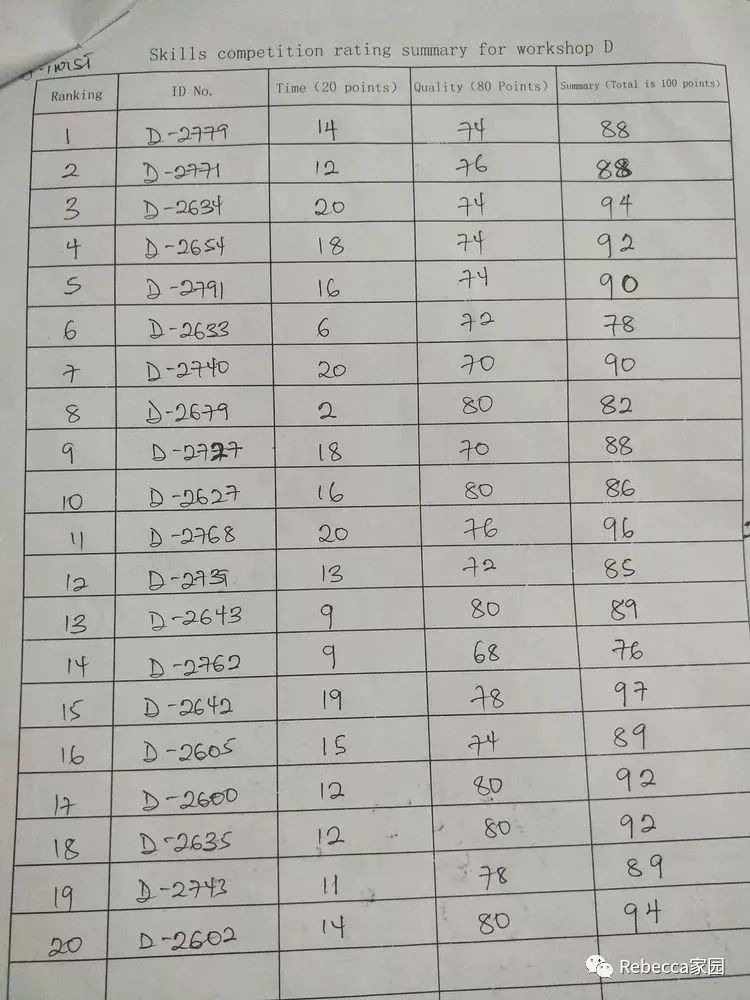 Skills competition rating summary for workshop D
Ranking ID No. Time (20 points) Quality (80 Points) Summary (Total is 100 points)
1 D-2779 14 74 88
2 D-2771 12 76 88
3 D-2634 20 74 94
4 D-2654 18 74 92
5 D-2791 16 74 90
6 D-2633 6 72 78
7 D-2740 20 70 90
8 D-2679 2 80 82
9 D-2727 18 70 88
10 D-2627 16 80 86
11 D-2768 20 76 96
12 13 72 85
13 D-2643 9 80 89
14 D-2762 9 68 76
15 D-2642 19 78 97
16 D-2605 15 74 89
17 D-2600 12 80 92
18 D-2635 12 80 92
19 D-2743 11 78 89
20 D-2602 14 80 94
Rebecca家园